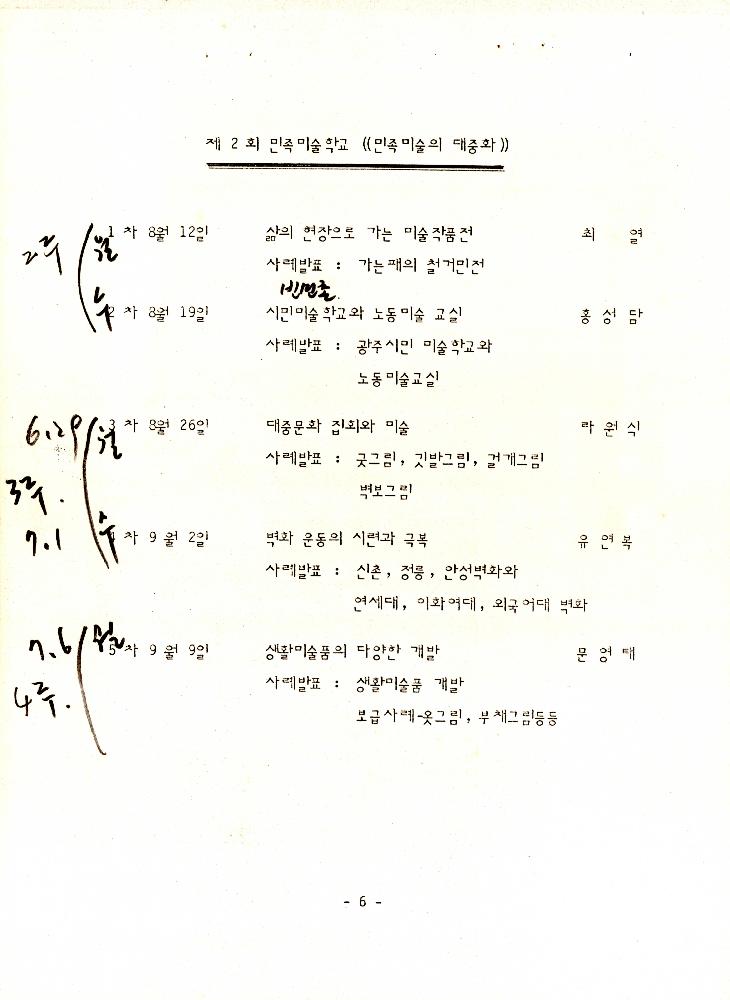 제 2 회 민족미술학교 ((민족미술의 대중화))
2주 월 1 차 8월 12일 삶의 현장으로 가는 미술작품전 최 열
사례발표 : 가는패의 철거민전
수 2 차 8월 19일 시민미술학교와 노동미술 교실 홍 성 담
사례발표 : 광주시민 미술학교와
노동미술교실
6.29 월 3 차 8월 26일 대중문화 집회와 미술 라 원 식
사례발표 : 굿그림, 깃발그림, 걸개그림
3주. 벽보그림
7.1 수 차 9 월 2일 벽화 운동의 시련과 극복 유 연 복
사례발표 : 신촌, 정릉, 안성벽화와
연세대, 이화여대, 외국어대 벽화
7.6 월 5 차 9 월 9일 생활미술품의 다양한 개발 문 영 태
4주. 사례발표 : 생활미술품 개발
보급사례-옷그림, 부채그림등등
- 6 -